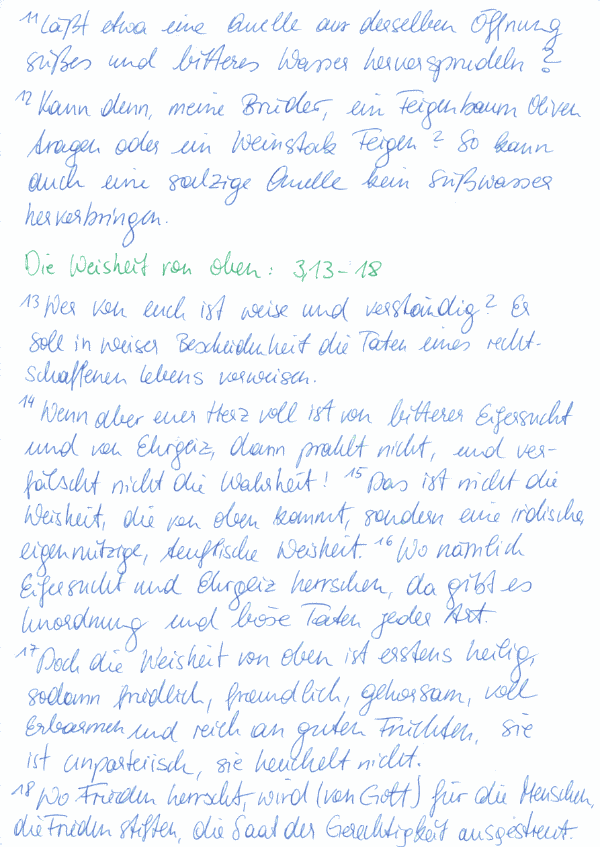 ¹¹ Läßt etwa eine Quelle aus derselben Öffnung
süßes und bitteres Wasser hervorsprudeln?
¹² Kann denn, meine Brüder, ein Feigenbaum Oliven
tragen oder ein Weinstock Feigen? So kann
auch eine salzige Quelle kein Süßwasser
hervorbringen.
Die Weisheit von oben: 3,13-18
¹³ Wer von euch ist weise und verständig? Er
soll in weiser Bescheidenheit die Taten eines recht-
schaffenen Lebens vorweisen.
¹⁴ Wenn aber euer Herz voll ist von bitterer Eifersucht
und von Ehrgeiz, dann prahlt nicht, und ver-
fälscht nicht die Wahrheit! ¹⁵ Das ist nicht die
Weisheit, die von oben kommt, sondern eine irdische,
eigennützige, teuflische Weisheit. ¹⁶ Wo nämlich
Eifersucht und Ehrgeiz herrschen, da gibt es
Unordnung und böse Taten jeder Art.
¹⁷ Doch die Weisheit von oben ist erstens heilig,
sodann friedlich, freundlich, gehorsam, voll
Erbarmen und reich an guten Früchten, sie
ist unparteiisch, sie heuchelt nicht.
¹⁸ Wo Frieden herrscht, wird (von Gott) für die Menschen,
die Frieden stiften, die Saat der Gerechtigkeit ausgestreut.